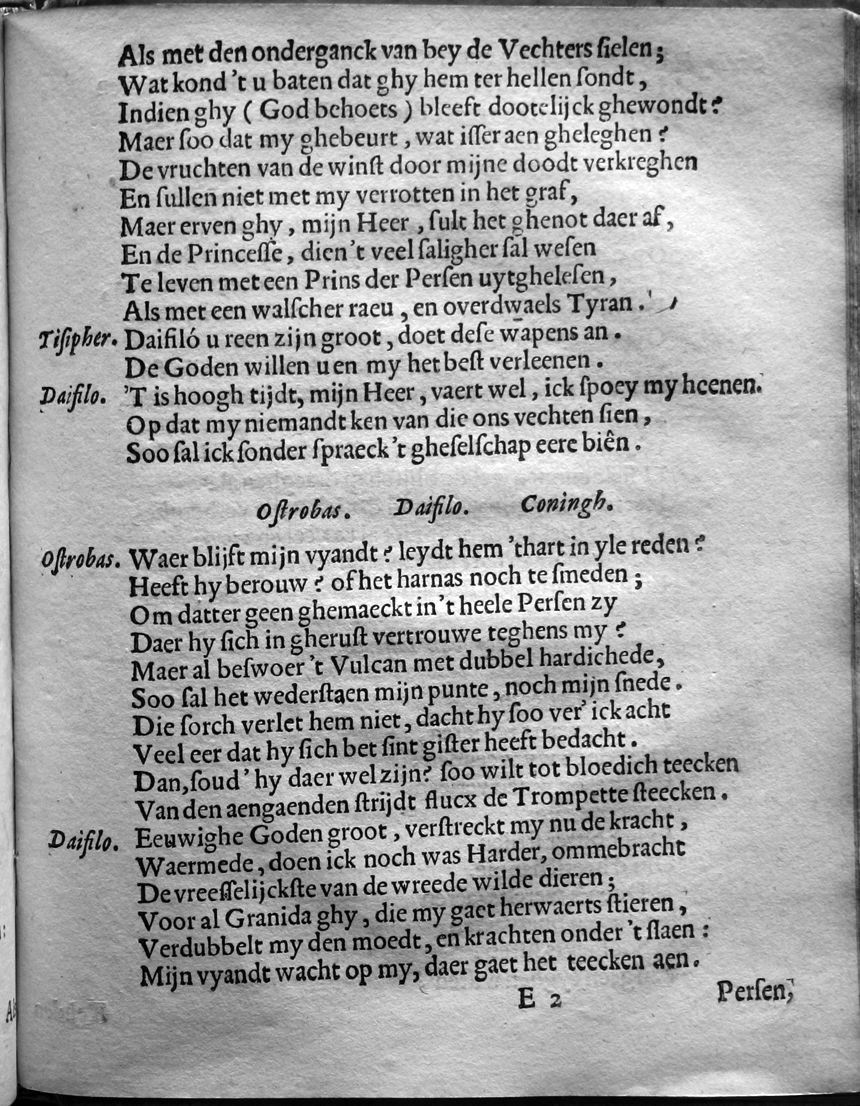 Als met den onderganck van bey de Vechters ſielen;
Wat kond 't u baten dat ghy hem ter hellen ſondt,
Indien ghy ( God behoets ) bleeft dootelijck ghewondt?
Maer ſoo dat my ghebeurt, wat iſſer aen gheleghen?
De vruchten van de winſt door mijne doodt verkreghen
En ſullen niet met my verrotten in het graf,
Maer erven ghy, mijn Heer, ſult het ghenot daer af,
En de Princeſſe, dien't veel ſaligher ſal weſen
Te leven met een Prins der Perſen uytgheleſen,
Als met een walſcher raeu, en overdwaels Tyran.
Tiſipher. Daifiló u reen zijn groot, doet deſe wapens an.
De Goden willen u en my het beſt verleenen.
Daifilo. 'T is hoogh tijdt, mijn Heer, vaert wel, ick ſpoey my heenen.
Op dat my niemandt ken van die ons vechten ſien,
Soo ſal ick ſonder ſpraeck 't gheſelſchap eere biên.
Oſtrobas. Daifilo. Coningh.
Oſtrobas. Waer blijft mijn vyandt? leydt hem 'thart in yle reden?
Heeft hy berouw? of het harnas noch te ſmeden;
Om datter geen ghemaeckt in't heele Perſen zy
Daer hy ſich in gheruſt vertrouwe teghens my?
Maer al beſwoer 't Vulcan met dubbel hardichede,
Soo ſal het wederſtaen mijn punte, noch mijn ſnede.
Die ſorch verlet hem niet, dacht hy ſoo ver' ick acht
Veel eer dat hy ſich bet ſint giſter heeft bedacht.
Dan, ſoud' hy daer wel zijn? ſoo wilt tot bloedich teecken
Van den aengaenden ſtrijdt flucx de Trompette ſteecken.
Daifilo. Eeuwighe Goden groot, verſtreckt my nu de kracht,
Waermede, doen ick noch was Harder, ommebracht
De vreeſſelijckſte van de wreede wilde dieren;
Voor al Granida ghy, die my gaet herwaerts ſtieren,
Verdubbelt my den moedt, en krachten onder 't ſlaen:
Mijn vyandt wacht op my, daer gaet het teecken aen.
E 2 Perſen,